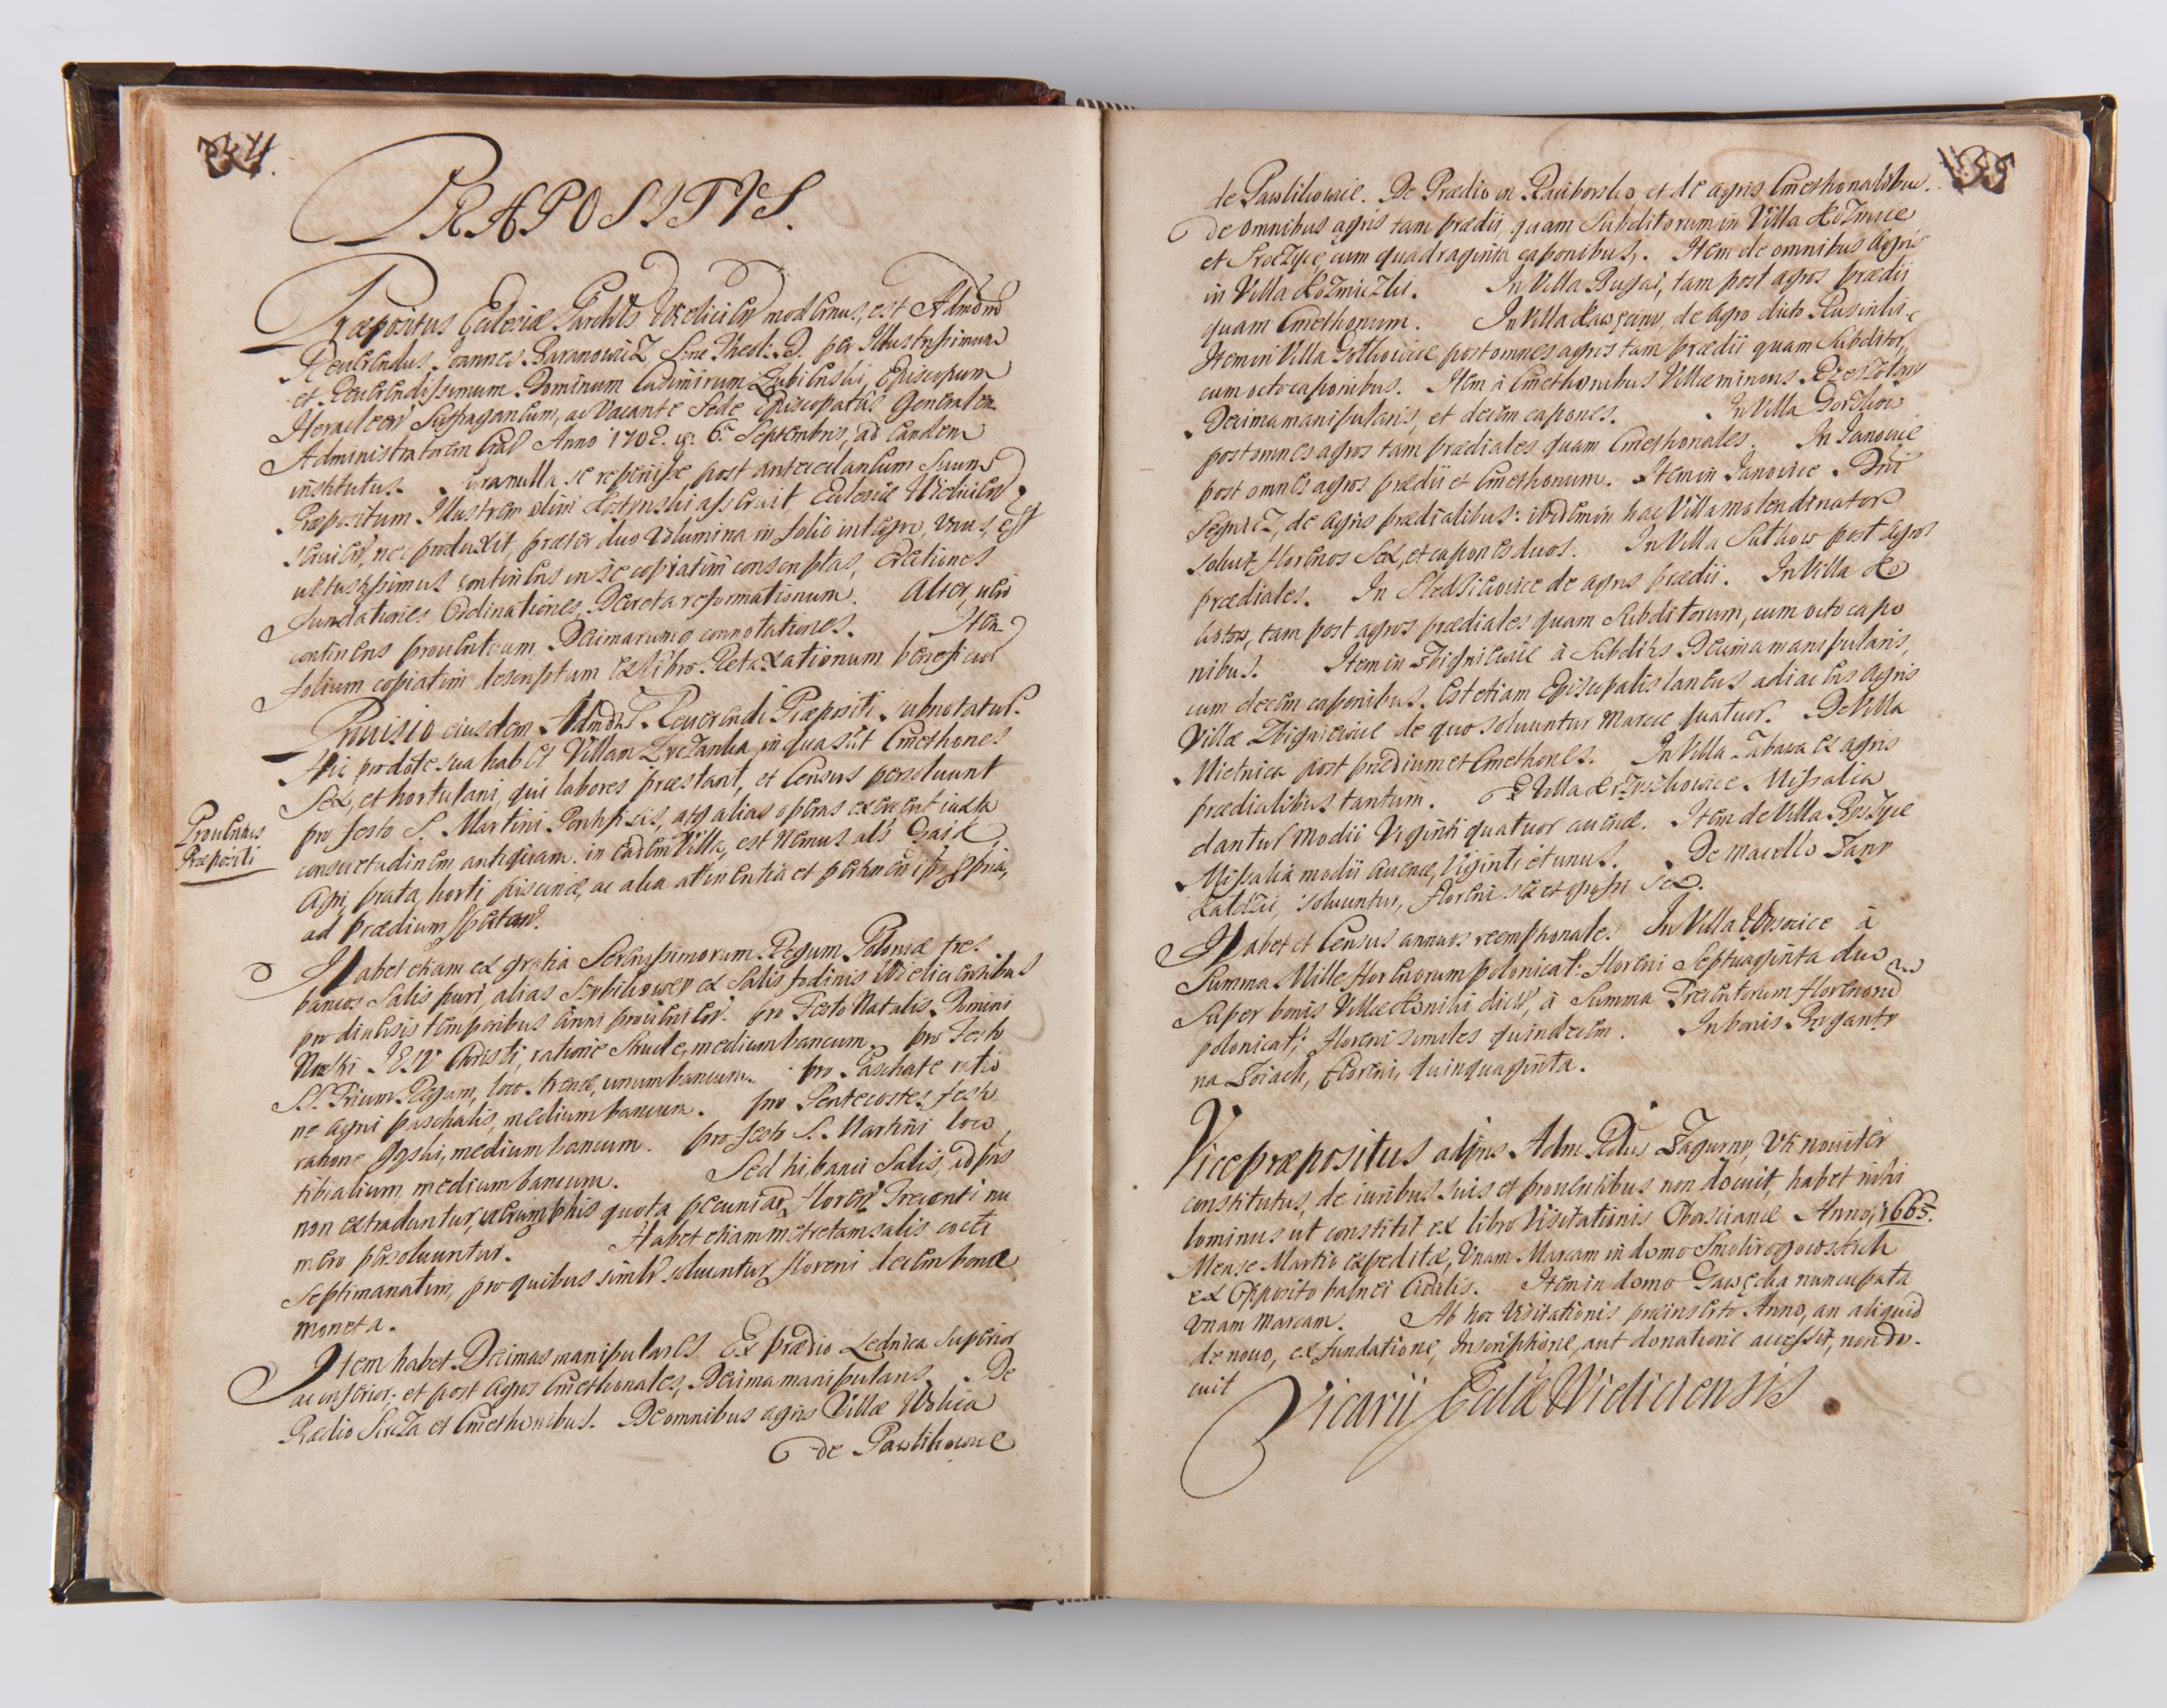 PRÆPOSITVS.
Præpositus Ecclesiæ Parchlis Wieliciensis modernus, est Admodum
Reuerendus Joannes Baranowicz Sme Theol: D. per Illustrissimum
et Reuerendissimum Dominum Casimirum Łubienski, Episcopum
Heracleen Suffraganeum, ac Vacante Sede Episcopatus Generalem
Administratorem Anno 1702. 6. Septembris, ad eandem
institutus. nulla se reperisse, post antecedaneum suum
Præpositum Illustrem olim asseruit, Ecclesiæ Wielicien
nec produxit, præter duo Volumina in folio integro, vnus, est
uetustissimus continens in se copiatim conscriptas, Erectiones
Fundationes Ordinationes Decreta reformationum. Alter, uero
continens prouentuum Decimarumq connotationes. Item
folium copiatim descriptum ex libro Retaxationum beneficior
Prouisio eiusdem Admodum Reuerendi Præpositi subnotatur.
Hic pro dote sua habet Villam in qua sunt Cmethones
Sex, et hortulani, qui labores præstant, et Census persoluunt
pro festo S. Martini Pontificis, atq alias operas exercent iuxta
Prouentus
Præpositi
consuetudinem antiquam. in eadem Villa, est Nemus als Gaik
Agri, prata, horti piscinæ, ac alia attinentia et
ad prædium spectan.
Habet etiam ex gratia Serenissimorum Regum Poloniæ tres
bancos Salis puri, alias ex Salis fodinis Wieliciensibus
pro diuersis temporibus Anni prouenien. pro Festo Natalis Domini
Nostri IESV Christi, ratione Strucle, medium bancum. pro Festo
SS. Trium Regum, loco unum bancum. pro Paschate ratio
ne agni paschalis, medium bancum. pro Pentecostes festo
ratione medium bancum. pro festo S. Martini loco
tibialium, medium bancum. Sed hi banci Salis, ad pns
non extraduntur, uerum p his quota pecuniar, Floren Trecenti nu
mero persoluuntur. Habet etiam metretam salis cocti
Septimanatim, pro quibus simlr soluuntur floreni decem bonæ
moneta.
Item habet Decimas manipulares Ex prædio Lednica Superior
ac inferior, et post Agros Cmethonales, Decima manipularis. De
Prædio et Cmethonibus. De omnibus agris Villæ Wolica
de Pawlikowice
de Pawlikowice. De Prædio in Raciborsko, et de agris Cmethonalibus.
De omnibus agris tam prædii, quam Subditorum in Villa Kozmice
et cum quadraginta caponibus. Item de omnibus Agris
in Villa Kozmiczki. In Villa Bugai, tam post agros prædii
quam Cmethonum. In Villa de Agro dicto
Item in Villa post omnes agros tam prædii quam Subditor,
cum octo caponibus. Item à Cmethonibus Villæ minoris
Decima manipularis, et decem capones. In Villa Gorzkow
post omnes agros tam prædiales quam Cmethonales. In Janowice
post omnes agros prædii et Cmethonum. Item in Janowice Dni
de Agris prædialibus: ibidem in hac Villa molendinator
soluit florenos Sex, et capones duos. In Villa Sułkow post Agros
prædiales. In Sledzieiowice de agris prædii. In Villa Ko
kotow, tam post agros prædiales quam Subditorum, cum octo capo
nibus. Item in Zbigniewice à Subditis Decima manipularis,
cum decem caponibus. Est etiam Episcopalis laneus adiacens agris
Villæ Zbigniewice de quo soluuntur Marcæ quatuor. De Villa
Mietnica post prædium et Cmethones. In Villa Tabawa ex agris
prædialibus tantum. E Villa Missalia
dantur modii Viginti quatuor auenæ. Item de Villa
Missalia modii Auenæ, Viginti et unus. De macello
soluuntur, floreni sex et grossi Sex.
Habet et Census annuos reemptionale. In Villa à
Summa Mille florenorum polonical: floreni Septuaginta duo
Super bonis Villæ dictæ, à Summa Trecentorum florenorum
polonical, floreni similes quindecim. In bonis
na floreni, quinquaginta.
Vicepræpositus ad pns Adm Rdus Zagurny, Vti nouiter
constitutus, de iuribus suis et prouentibus non docuit, habet nihi
lominus ut constitit ex libro Visitationis Anno, 1665.
Mense Martio expeditæ, Vnam Marcam in domo
ex opposito balnei Ciuilis. Item in domo nuncupata
Vnam Marcam. Ab hoc Visitationis præinserto Anno, an aliquid
de nouo, ex fundatione, Inscriptione, aut donatione accessit, non do.
cuit
Vicarii Eccłæ Wieliciensis